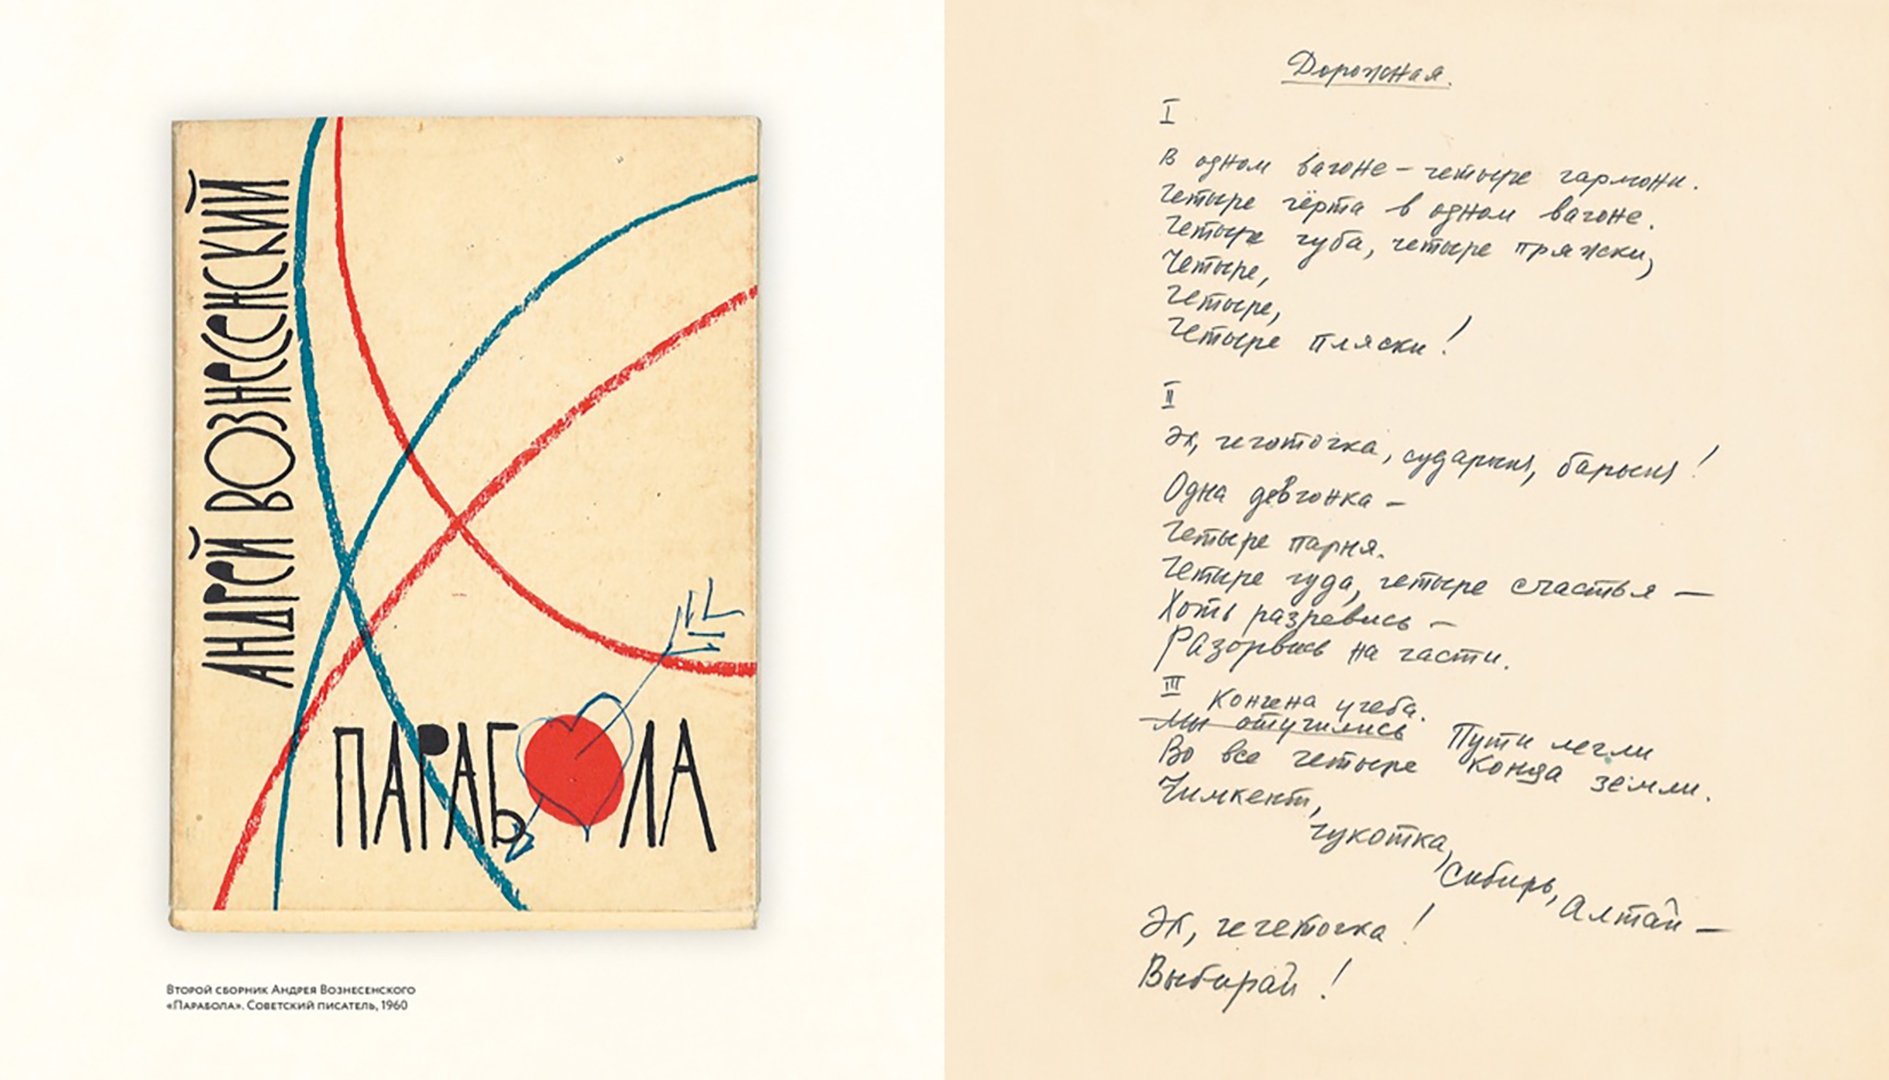 АНДРЕЙ ВОЗНЕСЕНСКИЙ
ПАРАБОЛА
Второй сборник Андрея Вознесенского
«Парабола». Советский писатель, 1960
Дорожная.
I
В одном вагоне – четыре гармони.
Четыре чёрта в одном вагоне.
Четыре чуба, четыре пряжки,
Четыре,
Четыре,
Четыре пляски!
II
Эх, чечоточка, сударыня, барыня!
Одна девчонка –
Четыре парня.
Четыре чуда, четыре счастья —
Хоть разревись –
Разорвись на части.
III
Кончена учеба.
Мы отучились Пути легли
Во все четыре конца земли.
Чимкент,
Чукотка,
Сибирь,
Алтай –
Эх, чечеточка!
Выбирай!